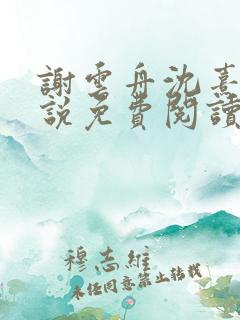 謝雲舟沈熹
說免費閱讀
穆志維
未经同意禁止转载